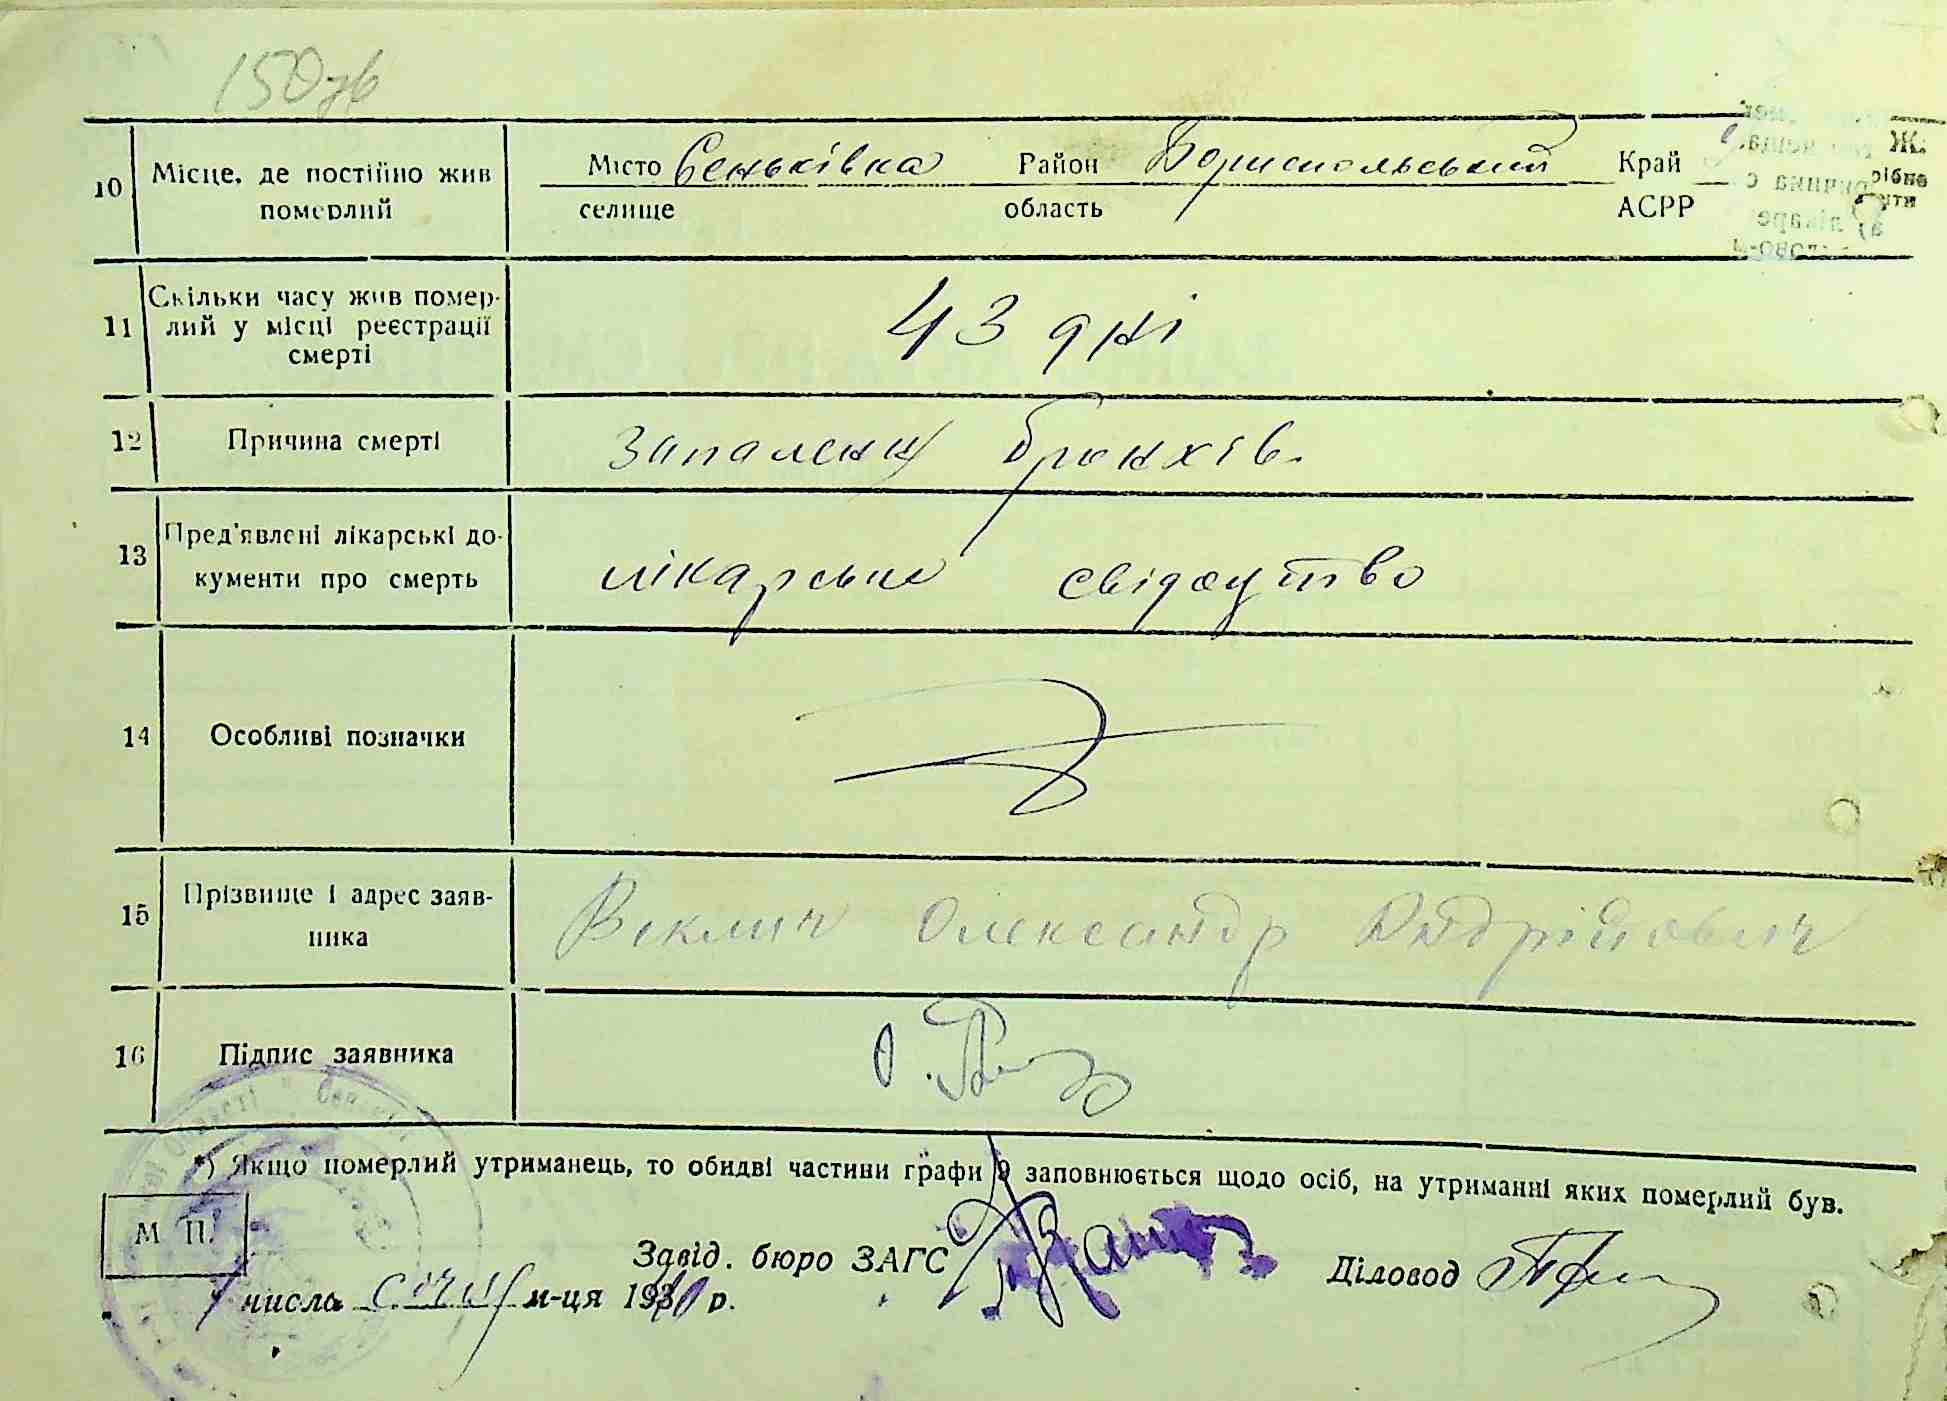 150зв
10 Місце, де постійно жив померлий
Місто Сеньківка Район Бориспольський Край
селище область АСРР
11 Скільки часу жив помер-
лий у місці реєстрації
смерті
43 дні
12 Причина смерті запалення бронхів.
13 Пред'явлені лікарські до-
кументи про смерть
лікарське свідоцтво
14 Особливі позначки
15 Прізвище і адрес заяв-
ника
Веклич Олександр Андрійович
16 Підпис заявника
*) Якщо померлий утриманець, то обидві частини графи 9 заповнюється щодо осіб, на утриманні яких померлий був.
М П.
Завід. бюро ЗАГС Діловод
числа січня м-ця 1940 р.